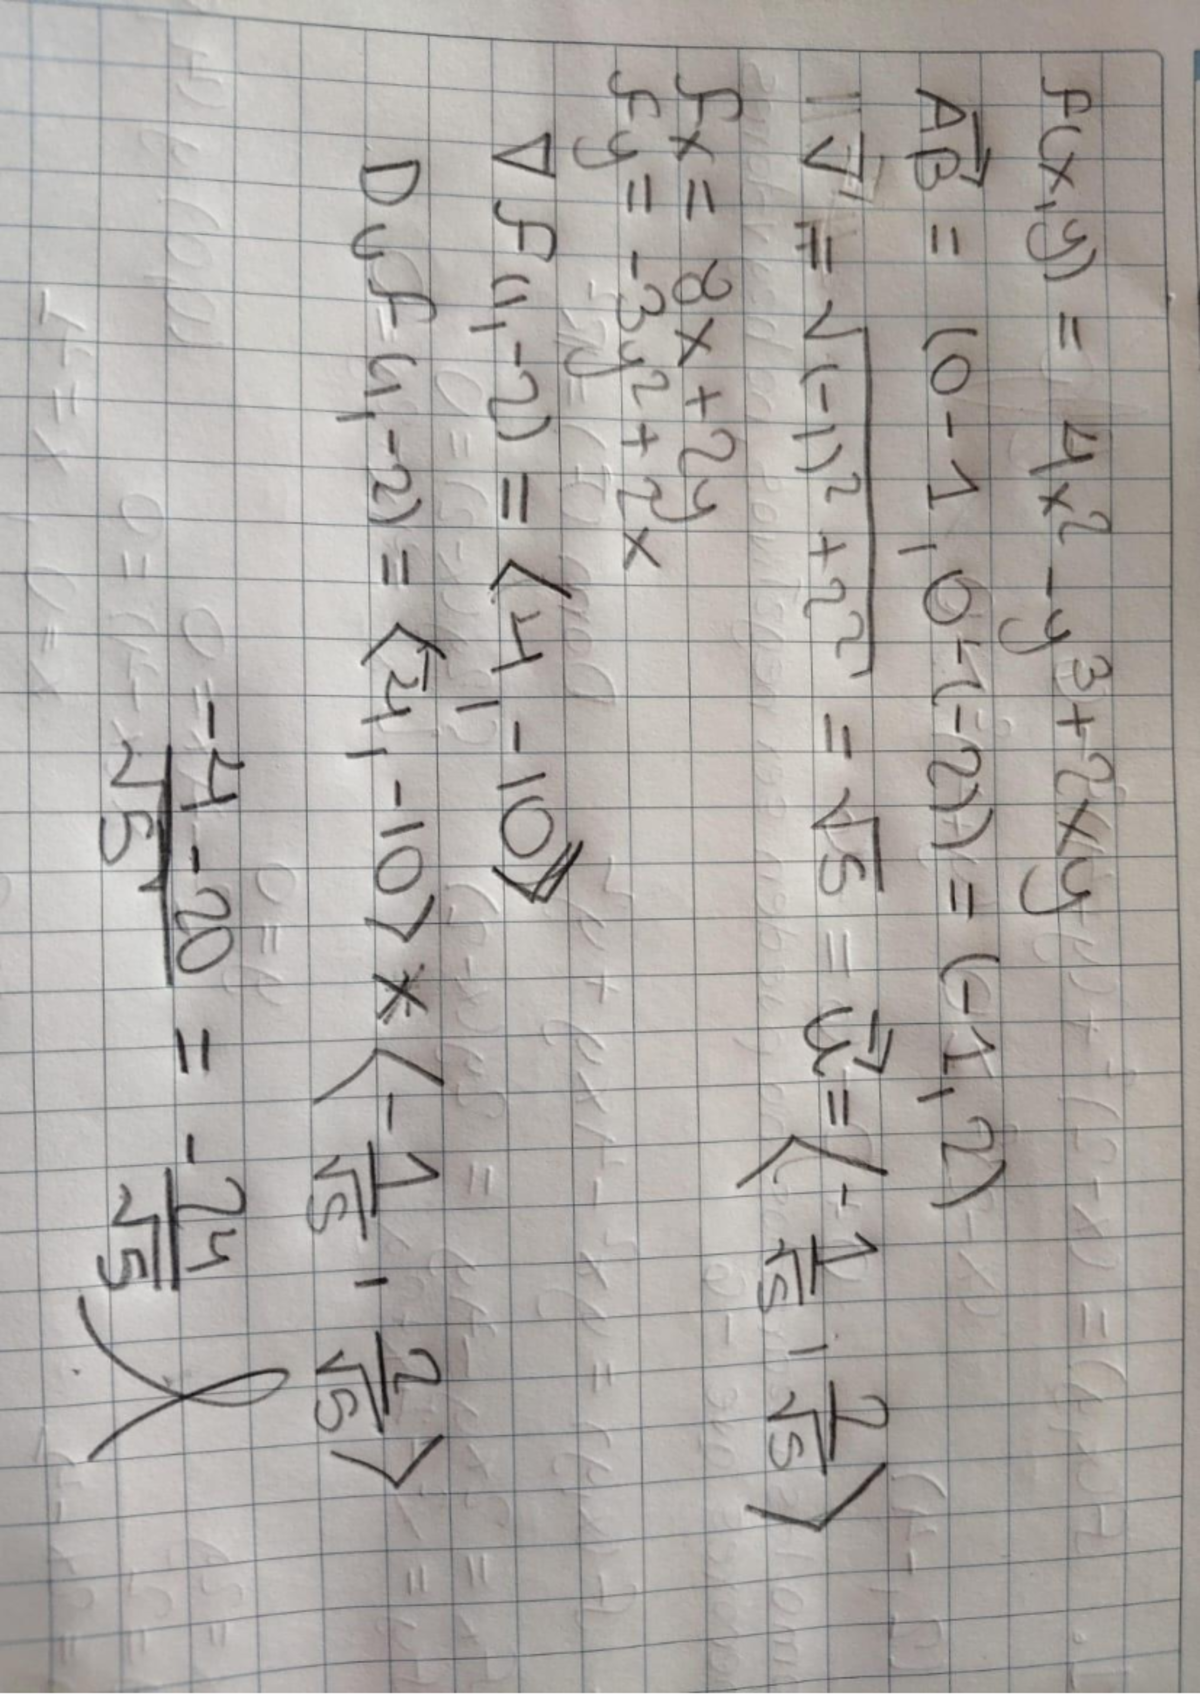 f(x,y) = 4x² - y³ + 2xy
AB⃗ = (0-1, 0-(-2)) = (-1, 2)
||v⃗|| = √((-1)² + 2²) = √5 = u⃗ = ⟨-1/√5, 2/√5⟩
fx = 8x + 2y
fy = -3y² + 2x
∇f(1,-2) = ⟨4, -10⟩
Duf=(1,-2) = ⟨4, -10⟩ * ⟨-1/√5, 2/√5⟩
(-4-20)/√5 = -24/√5